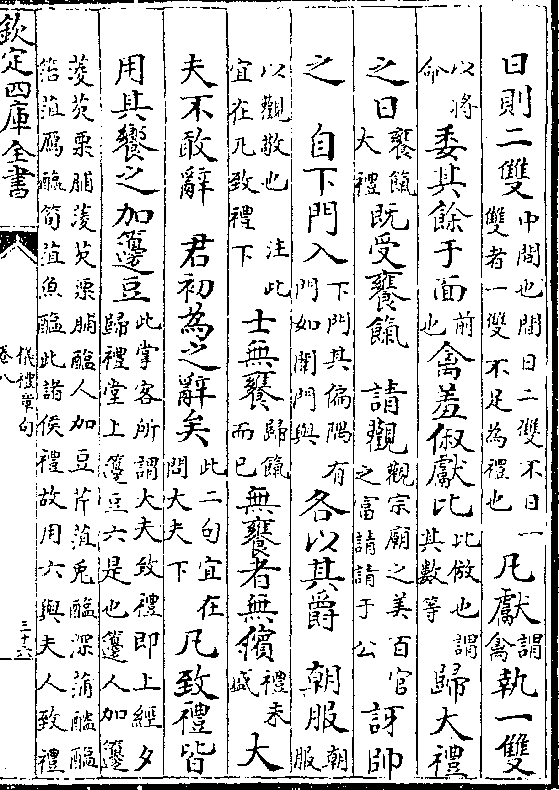 日則二雙中間也間日二雙不日一雙者一雙不足為禮也凡獻謂禽執一雙
以將命委其餘于面前也禽羞俶獻比比倣也謂其數等歸大禮
之日饔餼大禮既受饔餼 請觀觀宗廟之美百官之富請請于公訝帥
之 自下門入下門其偏隅有門如闈門與各以其爵 朝服朝服
以觀敬也 注此宜在凡致禮下士無饔歸餼而已無饔者無儐禮未盛大
夫不敢辭 君初為之辭矣此二句宜在問大夫下凡致禮皆
用其饗之加籩豆此掌客所謂大夫致禮即上經夕歸禮堂上籩豆六是也籩人加籩
菱芡栗脯菱芡栗脯醢人加豆芹菹兔醢深蒲醓醢箈菹鴈醢筍菹魚醢此諸侯禮故用六與夫人致禮
欽定四庫全書
儀禮章句
卷八
三十六